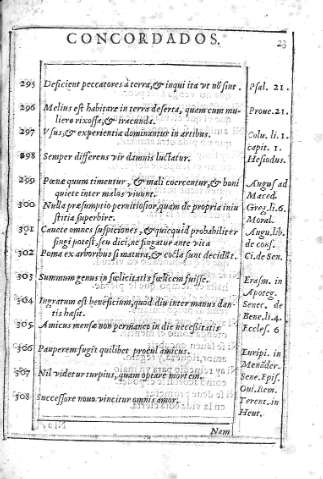 CONCORDADOS. 23
295 Deficient peccatores à terra, & inqui ita vt nõ sint. Psal. 21.
296 Melius est habitare in terra deserta, quam cum mu- Proue. 21.
liere rixossa, & iracunda.
297 Vsus, & experientia dominantur in artibus. Colu. li. 1.
capit. 1.
298 Semper differens vir damnis luctatur. Hesiodus.
299 Pœnæ quum timentur, & mali coercentur, & boni August. ad
quiete inter malos viuunt. Maced.
300 Nulla præsumptio pernitiosior, quam de propria iniu Greg. li. 6.
stitia superbire. Moral.
301 Cauete omnes suspiciones, & quicquid probabiliter Aug. lib.
fingi potest, seu dici, ne fingatur ante vita de conf.
302 Poma ex arboribus si matura, & cocta sunt decidũt. Ci. de Sen.
303 Summum genus in fœlicitatis fœlicem fuisse. Erasm. in
Apoteg.
304 Ingratum est beneficium, quod diu inter manus dan- Senec. de
tis hæsit. Bene. li. 4.
305 Amicus mensæ non permanet in die necessitatis Eccles. 6
306 Pauperem fugit quilibet procul amicus. Euripi. in
Menåder.
307 Nil videtur turpius, quam optare mortem. Sene. Epis.
Oui. Rem.
308 Successore nouo vincitur omnis amor. Terent. in
Heut.
Nam